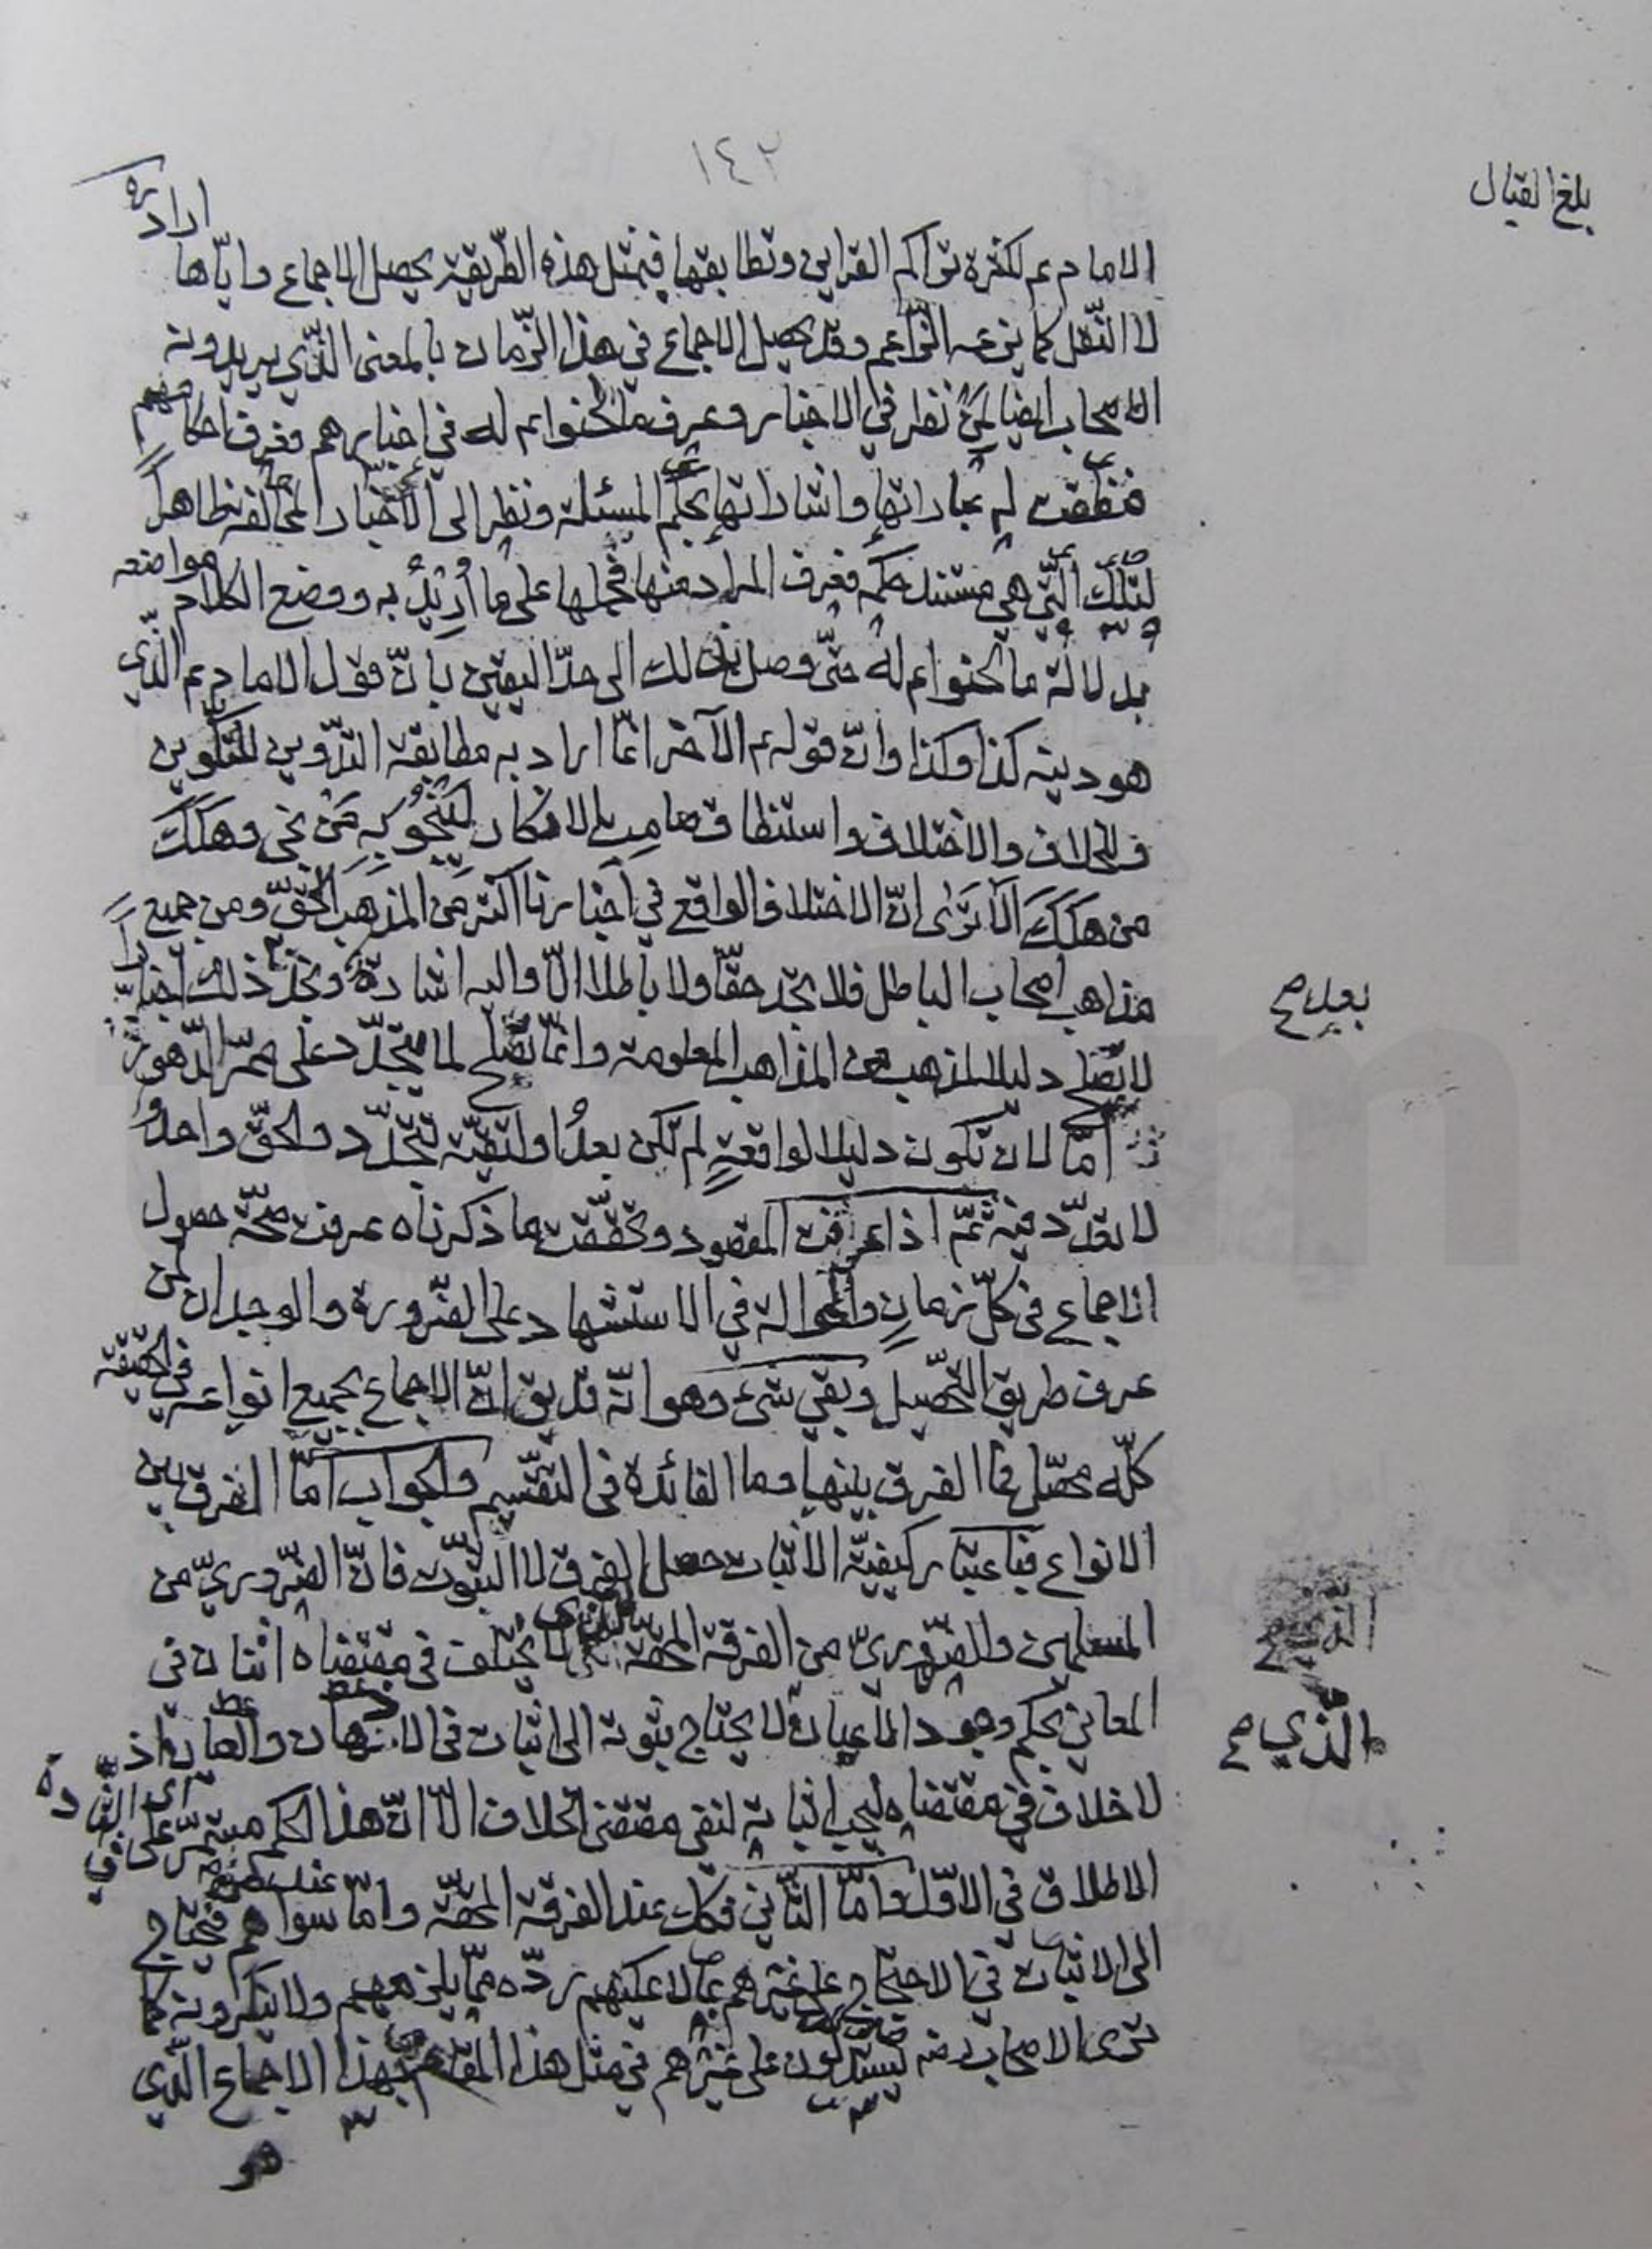 ١٤٢
بلغ القبال
اراده
الامام عم لكثرة تراكم القراين وتطابقها فبمثل هذه الطّريقة يحصل الاجماع واياها
لا النّقل كما يزعمه الزّاعم وقد يحصل الاجماع في هذا الزّمان بالمعنى الذّي يريدونه
الاصحاب ايضا لمَنْ نظر في الاخبار وعرف ما لحنوا عم له في اخبارهم فعرف احكامهم
فنطقت له عباراتها واشاراتها بحكم المسئلة ونظر الى الاخبار المخالفة بظاهرها
لتلك الّتي هي مستند حكمه فعرف المراد منها فحملها على ما أُريدَ به ووضع الكلام مواضعه
بدلالة ما لحنوا عم له حتّى وصل بذلك الى حدّ اليقين بانّ قول الامام عم الّذي
هو دينه كذا وكذا وانّ قوله عم الآخر انّما اراد به مطابقة التدّوين للتكّوين
في الخلاف والاختلاف واستنطاق ما من الافكار لينجُو به مَنْ نجى وهَلَكَ
من هَلَكَ اَلا تَرَى انّ الاختلاف الواقع في اخبارنا اكثر من المذهب الحقّ ومن جميع
مذاهب اصحاب الباطل فلا تجد حقّا ولا باطلا الّا واليه اشارة وتجد بعد ذلك اخباراً
لا تصلح دليلا لمذهب من المذاهب المعلومة وانّما تصلح لما يتجدّد على ممرّ الدّهور
امّا لان تكون دليلا لواقعةٍ لم تكن بعدُ او لتقيّة تتجدّد والحقّ واحدٌ
لا تعدّد فيه ثمّ اذا عرفت المقصود وتحقّقت ما ذكرناه عرفت صحّة حصول
الاجماع في كلّ زمانٍ والحوالة في الاستشهاد على الضّرورة والوجدان لمن
عرف طريق التّحصيل وبقي شيء وهو انّه قد يق انّ الاجماع بجميع انواعه في الحقيقة
كلّه محصّل فما الفرق بينها وما الفائدة في التقسيم والجواب امّا الفرق بين
الانواع فباعتبار كيفيّة الاثبات حصل الفرق لا الثبوت فانّ الضّروريّ من
المسلمين والضّروريّ من الفرقة المحقّة الّذي لا يختلف في مقتضاه اثنان في
المعاني بحكم وجود الاعيان لا يحتاج ثبوته الى اثبات في الاذهان والعيان اذ
لا خلاف في مقتضاه ليجب اثباته لنفي مقتضى الخلاف الّا انّ هذا الحكم مستمرّ على
الاطلاق في الاوّل وامّا الثّاني فكك عند الفرقة المحقّة وامّا عند من سواهم فيحتاج
الى الاثبات في الاحتجاج على غيرهم بما لا يمكنهم ردّه ممّا يلزمهم ولا ينكرونه كما
ترى الاصحاب رضه يستدلّون على غيرهم في مثل هذا المقام بهذا الاجماع الّذي
هو
بعد صح
الّذي صح
الّذي صح